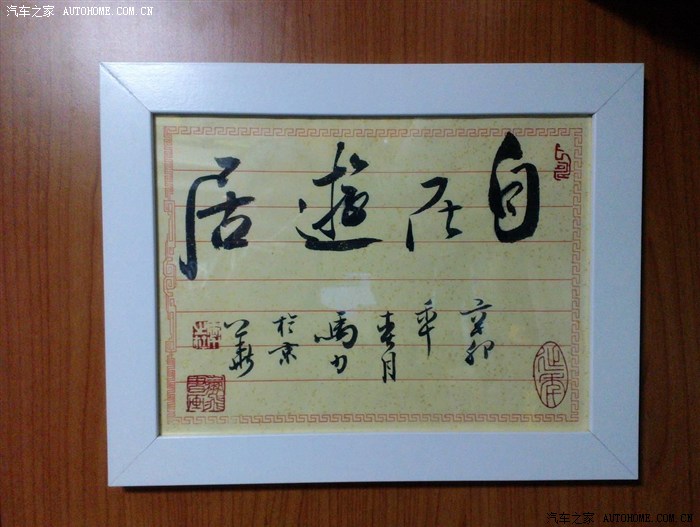 汽车之家 AUTOHOME.COM.CN
自在遊居
辛卯
年
春月
馬力
於京
汽车之家 AUTOHOME.COM.CN